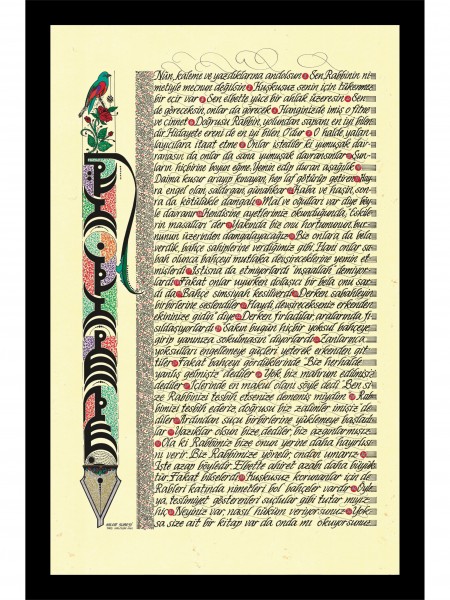 Nûn, kaleme ve yazdıklarına andolsun Sen Rabbinin ni-
metiyle mecnun değilsin Kuşkusuz senin için tükenmez
bir ecir var Sen elbette yüce bir ahlak üzeresin Sen
de göreceksin, onlar da görecek Hanginizde imiş o fitne
ve cinnet Doğrusu Rabbin, yolundan sapanı en iyi bilen-
dir. Hidayete ereni de en iyi bilen O'dur O halde, yalan-
layıcılara itaat etme Onlar istediler ki yumuşak dav-
ranasın da, onlar da sana yumuşak davransınlar Şun-
ların hiçbirine boyun eğme: Yemin edip duran aşağılık
Daima kusur arayıp kınayan, hep laf götürüp getiren Hayı-
ra engel olan, saldırgan, günahkar Kaba ve haşin, son-
ra da kötülükle damgalı Mal ve oğulları var diye böy-
le davranır Kendisine ayetlerimiz okunduğunda, "Eskile-
rin masalları" der Yakında biz onu hortumunun, bur-
nunun üzerinden damgalayacağız Biz onlara da bela
verdik, bahçe sahiplerine verdiğimiz gibi. Hani onlar sa-
bah olunca bahçeyi mutlaka devşireceklerine yemin et-
mişlerdi İstisna da etmiyorlardı inşaallah demiyor-
lardı Fakat onlar uyurken dolaşıcı bir bela onu sar-
dı da Bahçe simsiyah kesiliverdi Derken sabahleyin
birbirlerine seslendiler Haydi, devşirecekseniz erkenden
ekininize gidin" diye Derken fırladılar, aralarında fı-
sıldaşıyorlardı Sakın bugün hiçbir yoksul bahçeye
girip yanınıza sokulmasın" diyorlardı Zanlarınca,
yoksulları engellemeye güçleri yeterek erkenden git-
tiler Fakat bahçeyi gördüklerinde "Biz herhalde
yanlış gelmişiz" dediler Yok, biz mahrum edilmişiz
dediler İçlerinde en makul olanı şöyle dedi "Ben si-
ze Rabbinizi tesbih etsenize demedim miydim" Rab-
bimizi tesbih ederiz, doğrusu biz zalimler imişiz de-
diler Ardından suçu birbirlerine yüklemeye başladı-
lar Yazıklar olsun bize, dediler, biz azgınlarmışız
Ola ki Rabbimiz bize onun yerine daha hayırlısı-
nı verir. Biz Rabbimize yönelir, ondan umarız
İşte azap böyledir. Elbette ahiret azabı daha büyük-
tür. Fakat bilselerdi Kuşkusuz korunanlar için de
Rableri katında nimetleri bol bahçeler vardır Öy-
le ya, teslimiyet gösterenleri suçlular gibi tutar mıyız
hiç Neyiniz var, nasıl hüküm veriyorsunuz Yok-
sa size ait bir kitap var da onda mı okuyorsunuz